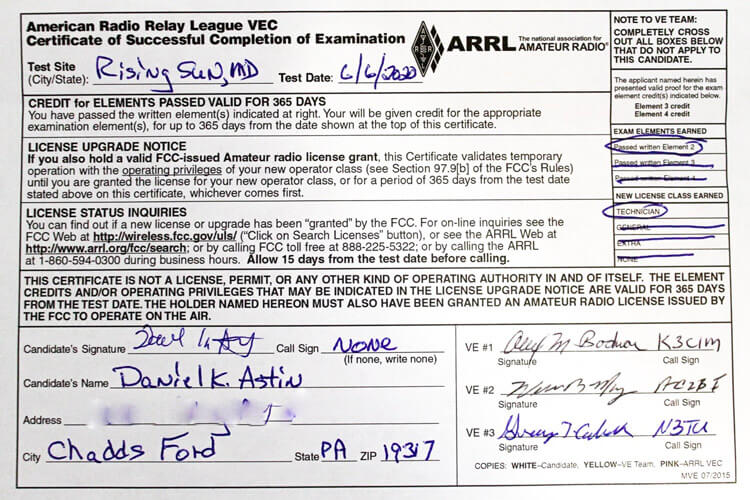 American Radio Relay League VEC
Certificate of Successful Completion of Examination
ARRL The national association for AMATEUR RADIO®
Test Site
(City/State): Rising Sun, MD Test Date: 6/6/2020
CREDIT for ELEMENTS PASSED VALID FOR 365 DAYS
You have passed the written element(s) indicated at right. You will be given credit for the appropriate
examination element(s), for up to 365 days from the date shown at the top of this certificate.
LICENSE UPGRADE NOTICE
If you also hold a valid FCC-issued Amateur radio license grant, this Certificate validates temporary
operation with the operating privileges of your new operator class (see Section 97.9[b] of the FCC's Rules)
until you are granted the license for your new operator class, or for a period of 365 days from the test date
stated above on this certificate, whichever comes first.
LICENSE STATUS INQUIRIES
You can find out if a new license or upgrade has been "granted" by the FCC. For on-line inquiries see the
FCC Web at http://wireless.fcc.gov/uls/ ("Click on Search Licenses" button), or see the ARRL Web at
http://www.arrl.org/fcc/search; or by calling FCC toll free at 888-225-5322; or by calling the ARRL
at 1-860-594-0300 during business hours. Allow 15 days from the test date before calling.
NOTE TO VE TEAM:
COMPLETELY CROSS
OUT ALL BOXES BELOW
THAT DO NOT APPLY TO
THIS CANDIDATE.
The applicant named herein has
presented valid proof for the exam
element credit(s) indicated below.
Element 3 credit
Element 4 credit
EXAM ELEMENTS EARNED
Passed written Element 2
Passed written Element 3
Passed written Element 4
NEW LICENSE CLASS EARNED
TECHNICIAN
GENERAL
EXTRA
NONE
THIS CERTIFICATE IS NOT A LICENSE, PERMIT, OR ANY OTHER KIND OF OPERATING AUTHORITY IN AND OF ITSELF. THE ELEMENT
CREDITS AND/OR OPERATING PRIVILEGES THAT MAY BE INDICATED IN THE LICENSE UPGRADE NOTICE ARE VALID FOR 365 DAYS
FROM THE TEST DATE. THE HOLDER NAMED HEREON MUST ALSO HAVE BEEN GRANTED AN AMATEUR RADIO LICENSE ISSUED BY
THE FCC TO OPERATE ON THE AIR.
Candidate's Signature Call Sign NONE
(If none, write none)
Candidate's Name Daniel K. Astin
Address
City Chadds Ford State PA ZIP 19317
VE #1 K3CIM
Signature Call Sign
VE #2
Signature Call Sign
VE #3 N3TU
Signature Call Sign
COPIES: WHITE–Candidate, YELLOW–VE Team, PINK–ARRL VEC
MVE 07/2015